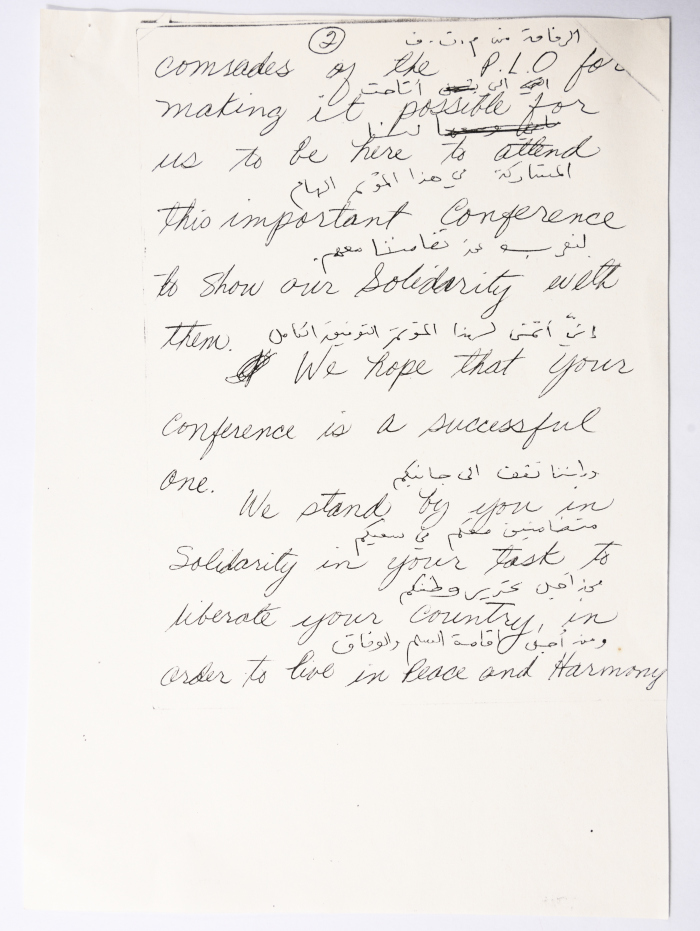 2
الرفاقة من م.ت.ف
comrades of the P.L.O for
الى أتاحت
making it possible for
لنا
us to be here to attend
المشاركة في هذا المؤتمر الهام
this important Conference
لنعرب عن تضامننا معهم.
to show our Solidarity with
them.
إنّي أتمنى لهذا المؤتمر التوفيق الكامل
We hope that your
Conference is a successful
one.
وإننا نقف الى جانبكم
We stand by you in
متضامنين معكم في سعيكم
Solidarity in your task to
من أجل تحرير وطنكم
liberate your Country, in
ومن أجل إقامة السلم والوفاق
order to live in Peace and Harmony